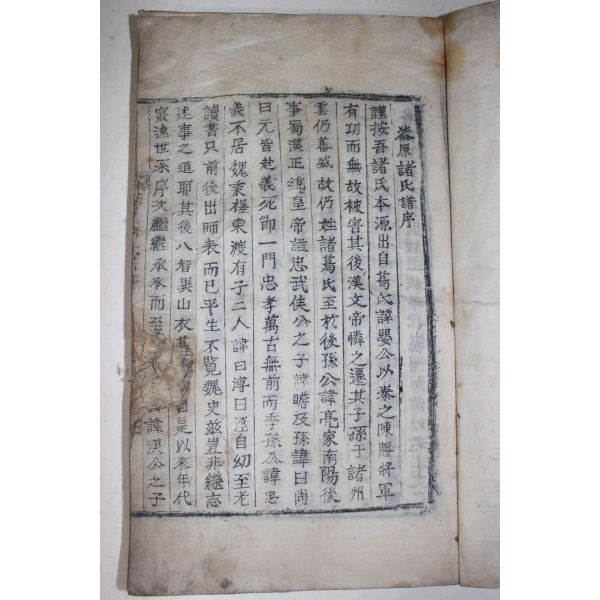 漆原諸氏譜序
謹按吾諸氏本源出自葛氏諱嬰公以秦之陳勝將軍
有功而無故被害其後漢文帝憐之遷其子孫于諸州
雲仍蕃盛故仍姓諸葛氏至於後孫公諱亮家南陽後
事蜀漢正統皇帝謚忠武侯公之子諱瞻及孫諱曰尚
曰元皆赴義死節一門忠孝萬古無前而季孫公諱忠
義不居魏乘桴東渡有子二人諱曰淳曰溼自幼至老
讀書只前後出師表而已平生不覽魏史玆豈非繼志
述事之道耶其後八智異山衣自是以來年代
寢遠世系序次繼繼承承而至諱漢公之子